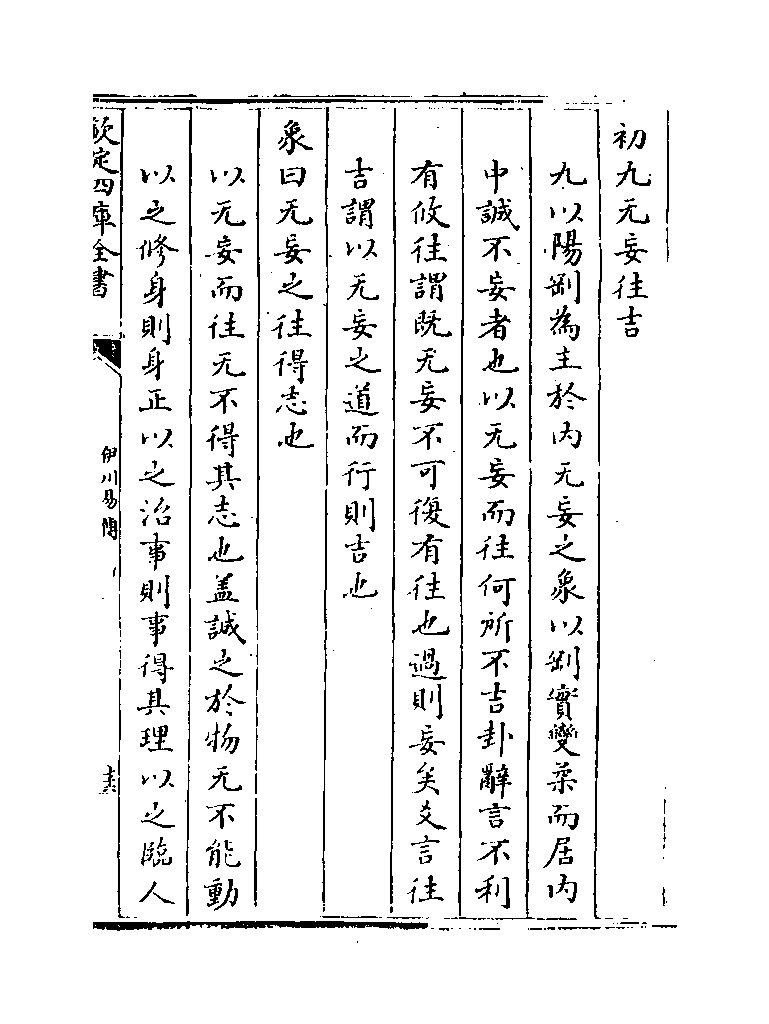 初九无妄往吉
九以陽剛為主於内无妄之象以剛實變柔而居内
中誠不妄者也以无妄而往何所不吉卦辭言不利
有攸往謂既无妄不可復有往也過則妄矣爻言往
吉謂以无妄之道而行則吉也
象曰无妄之往得志也
以无妄而往无不得其志也盖誠之於物无不能動
以之修身則身正以之治事則事得其理以之臨人
欽定四庫全書
伊川易傳